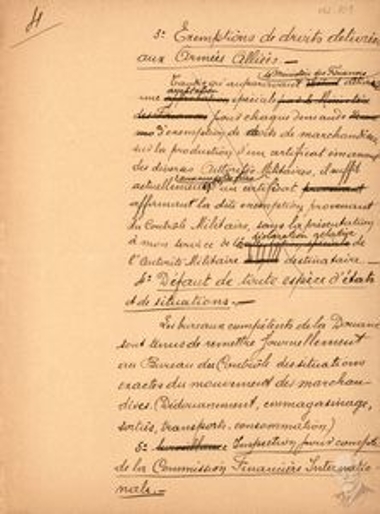 4
3º Exemptions de droits délivrées
aux Armées Alliées. —
Tandis qu'auparavant le Ministère des Finances
une spéciale
pour chaque demande
d'exemption de droits de marchandises
sur la production d'un certificat émanant
des diverses Autorités Militaires, il suffit
actuellement un certificat
affirmant la dite exemption provenant
du Contrôle Militaire, sans la présentation
à mon service de la déclaration relative de
l'Autorité Militaire destinataire. —
4º Défaut de toute espèce d'états
et de situations. —
Les bureaux compétents de la Douane
sont tenus de remettre journellement
au Bureau du Contrôle des situations
exactes du mouvement des marchan-
dises. (Dédouanement, emmagasinage,
sorties, transports, consommation)
5º Inspection pour compte
de la Commission Financière Internatio-
nale. —